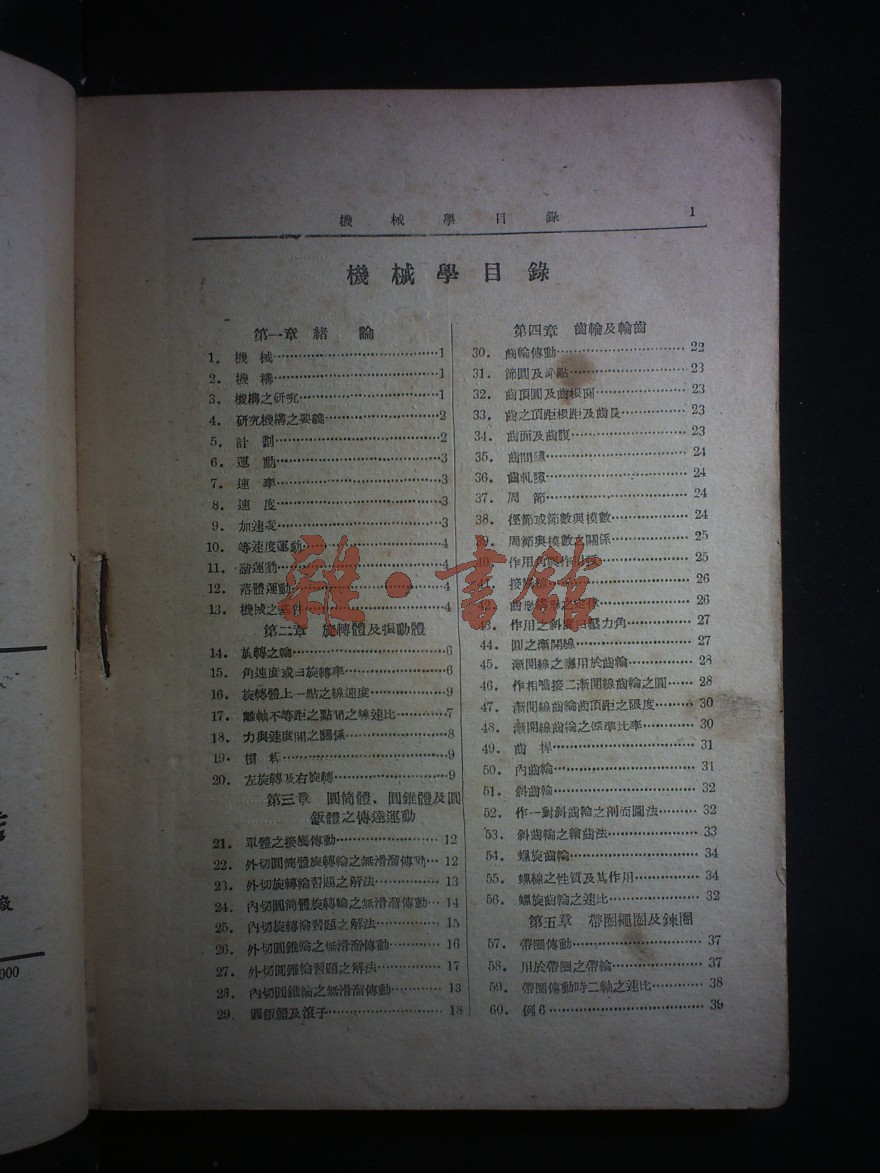 機械學目錄 1
機械學目錄
第一章 緒論
1. 機械 1
2. 機構 1
3. 機構之研究 1
4. 研究機構之要 2
5. 計劃 2
6. 運動 3
7. 速率 3
8. 速度 3
9. 加速度 3
10. 等速度運動 4
11. 諧運動 4
12. 落體運動 4
13. 機械之 4
第二章 旋轉體及振動體
14. 旋轉之輪 6
15. 角速度或曰旋轉率 6
16. 旋轉體上一點之線速度 9
17. 離軸不等距之點間之線速比 7
18. 力與速度間之關係 8
19. 慣 9
20. 左旋轉及右旋轉 9
第三章 圓筒體、圓錐體及圓
鈑體之傳達運動
21. 單體之接觸傳動 12
22. 外切圓筒體旋轉輪之無滑溜傳動 12
23. 外切旋轉輪習題之解法 13
24. 內切圓筒體旋轉輪之無滑溜傳動 14
25. 內切旋轉輪習題之解法 15
26. 外切圓錐輪之無滑溜傳動 16
27. 外切圓錐輪習題之解法 17
28. 內切圓錐輪之無滑溜傳動 13
29. 圓鈑體及滾子 18
第四章 齒輪及輪齒
30. 齒輪傳動 22
31. 節圓及節點 23
32. 齒頂圓及齒根圓 23
33. 齒之頂距根距及齒長 23
34. 齒面及齒腹 23
35. 齒間隙 24
36. 齒軋隙 24
37. 周節 24
38. 徑節或節數與模數 24
39. 周節與模數之關係 25
40. 作用角與作用 25
41. 接觸 26
42. 齒形 之定律 26
43. 作用之斜度曰壓力角 27
44. 圓之漸開線 27
45. 漸開線之應用於齒輪 28
46. 作相嚙接二漸開線齒輪之圓 28
47. 漸開線齒輪齒頂距之限度 30
48. 漸開線齒輪之標準比率 30
49. 齒桿 31
50. 內齒輪 31
51. 斜齒輪 32
52. 作一對斜齒輪之剖面圖法 32
53. 斜齒輪之繪齒法 33
54. 螺旋齒輪 34
55. 螺線之性質及其作用 34
56. 螺旋齒輪之速比 32
第五章 帶圈繩圈及鍊圈
57. 帶圈傳動 37
58. 用於帶圈之帶輪 37
59. 帶圈傳動時二軸之速比 38
60. 例6 39
雜·書館
廠
000